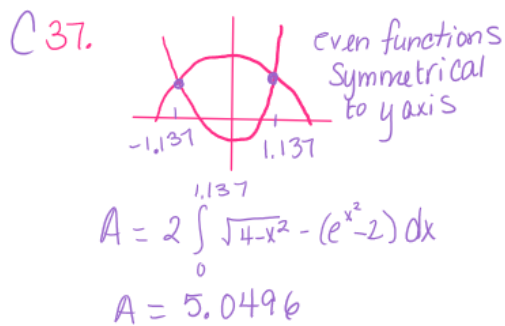 C 37.
even functions
Symmetrical
to y axis
-1.137
1.137
A = 2 ∫₀^1.137 √(4-x²) - (e^x² -2) dx
A = 5.0496